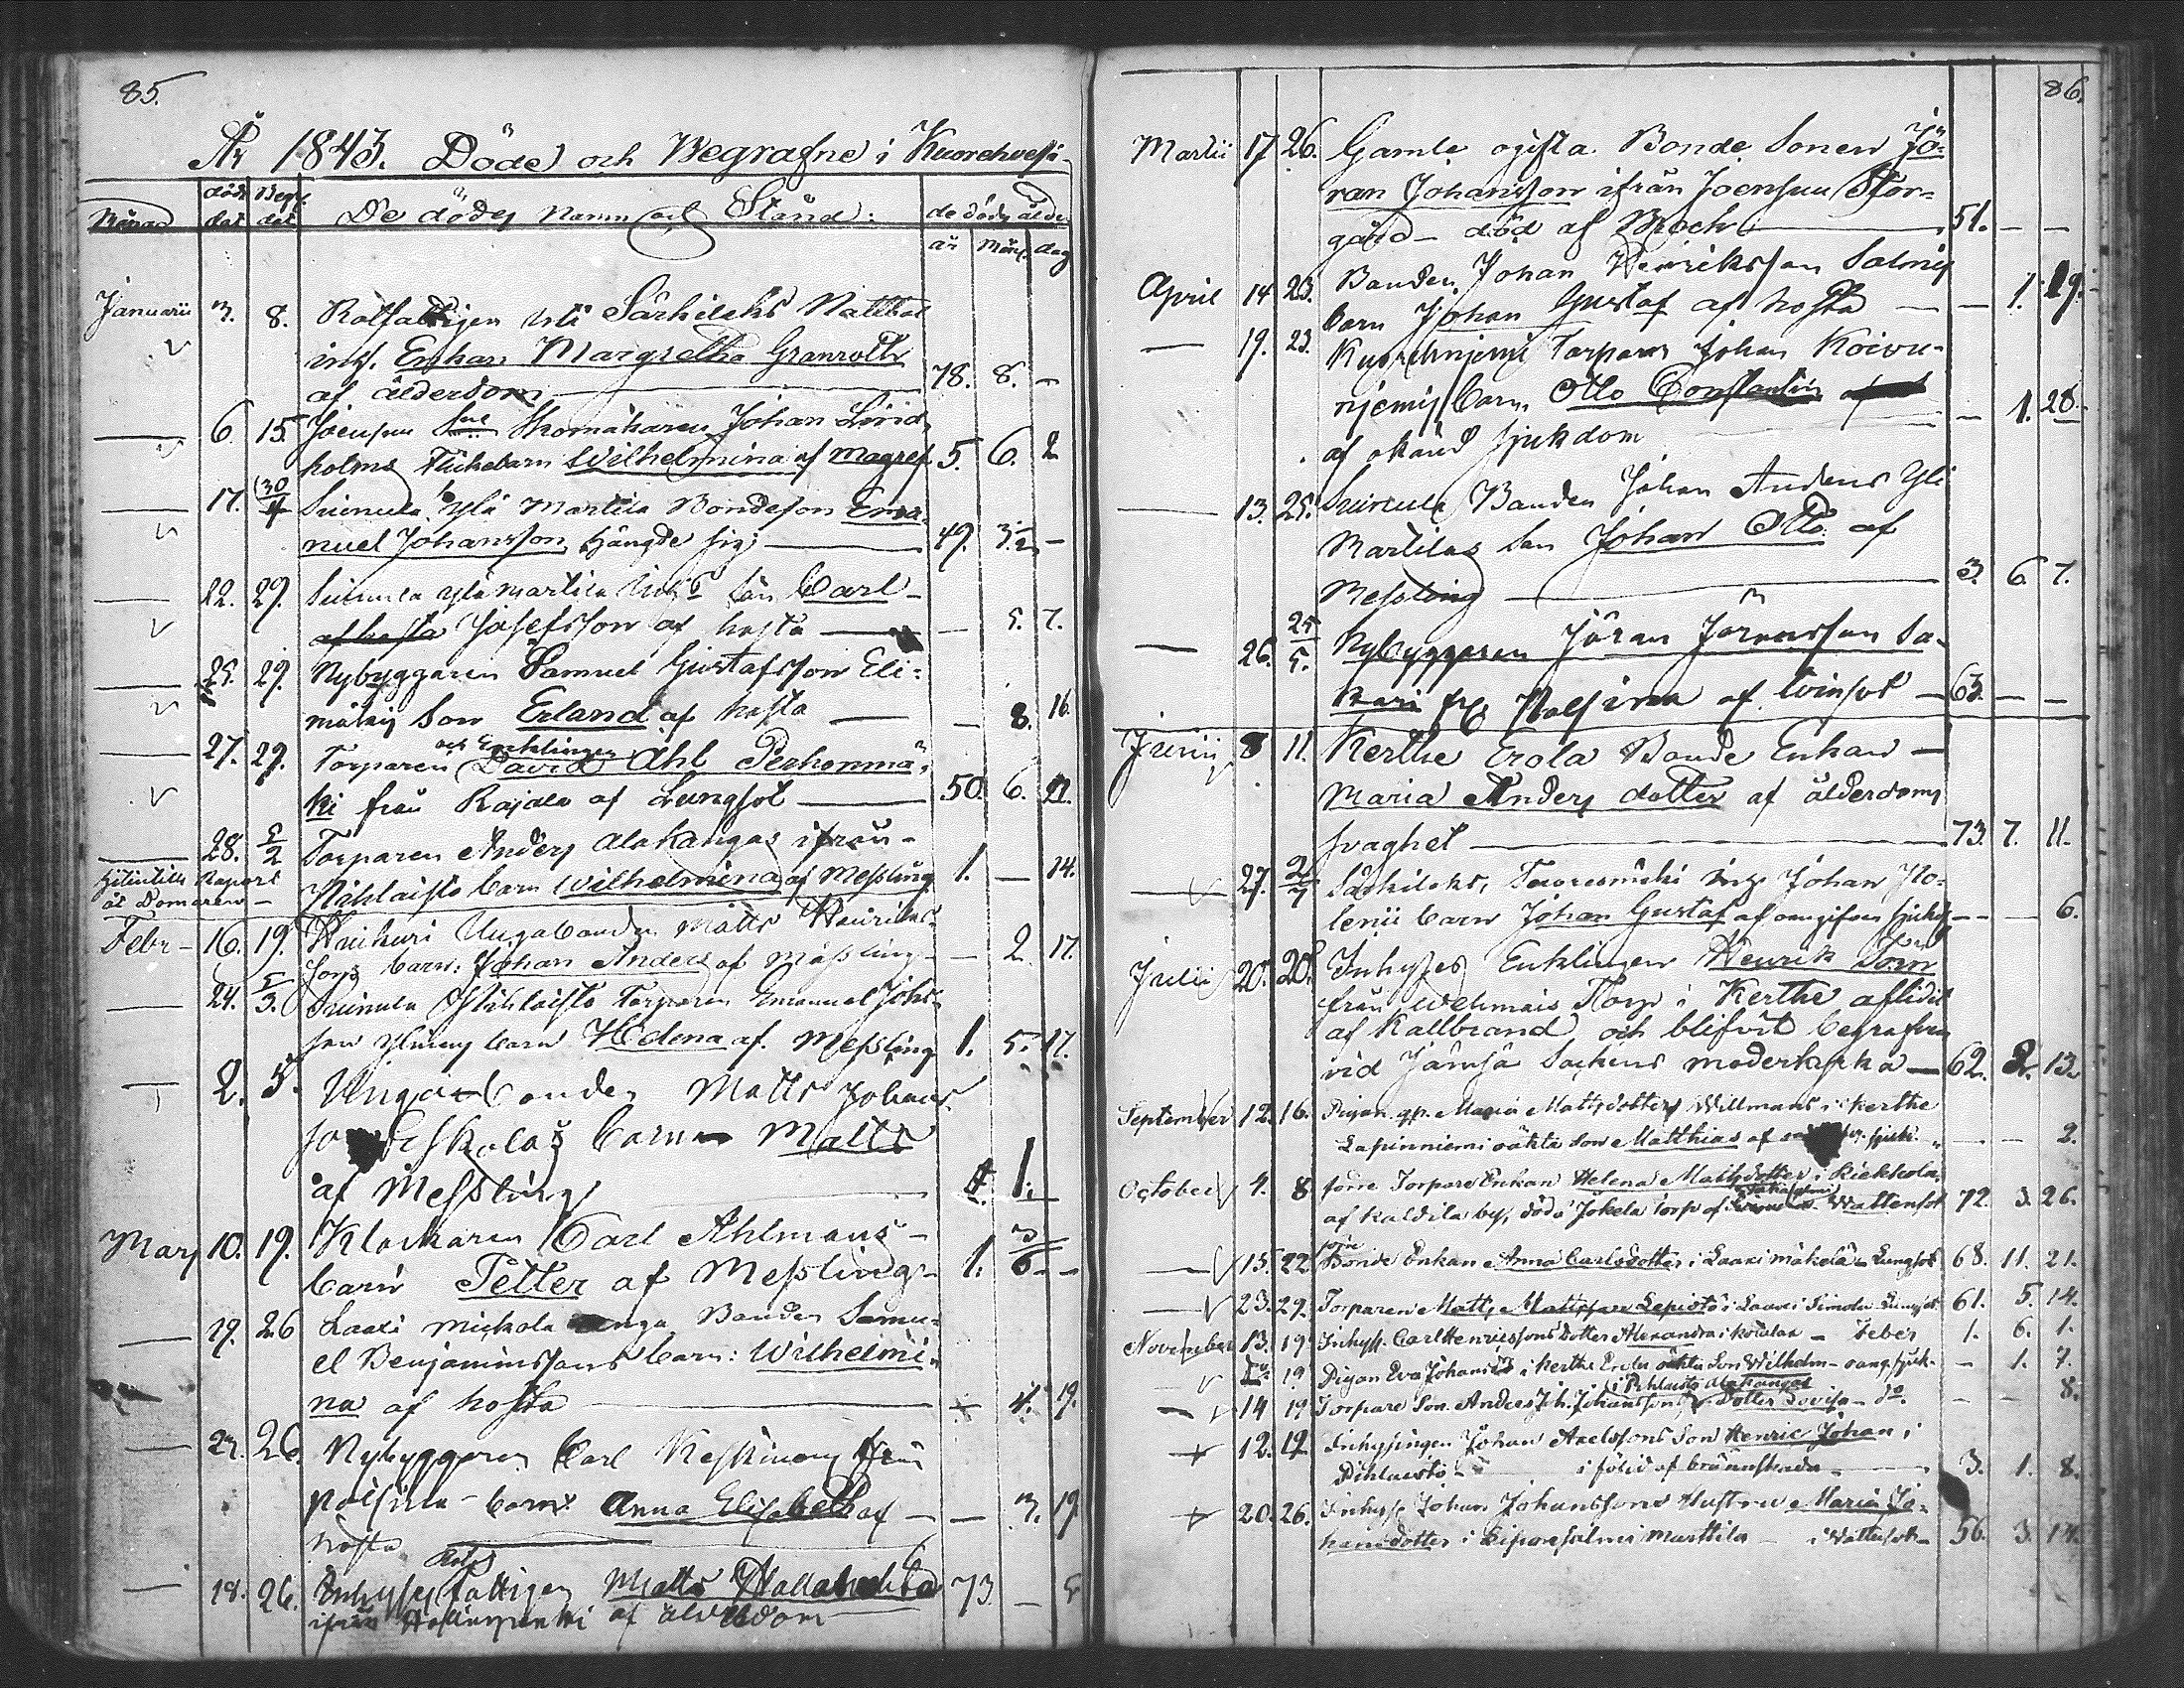 85.
År 1843. Döde och Begrafne i Kuorehvesi
Månad döds dat Begr. dat De dödes Namn och Stånd: de dödes ålder
år mån. dag
Januarii 3. 8. Rotfattigen uti Särkilaks Mattila
inh. Enkan Margretha Granroth
af ålderdom 78. 8. —
— 6. 15. Joensuu Skomakaren Johan Lind
holms flickebarn Wilhelmina af magref 5. 6. 2
— 17. 30/4 Suinula Ylä Martila Bondeson Ema
nuel Johansson, hängde sig 49. 3. —
— 22. 29. Suinula Ylä Martila son Carl
af hosta Josefsson af hosta — 5. 7.
— 25. 29. Nybyggaren Samuel Gustafsson Eli-
mäkis Son Erland af hosta — 8. 16.
— 27. 29. Torparen och Enklingen David Ahl Perhonmä-
ki från Rajala af Lungsot 50. 6. 22.
— 28. 5/2 Torparen Anders Alakangas ifrån
Pihlaisto barn Wilhelmina af Messling 1. — 14.
Raport
åt Domaren
Febr — 16. 19. Unga bonden Matts Henriks
sons barn: Johan Anders af Mässling — 2. 17.
— 24. 5/3. Suinula Pihlaisto Torparen Emanuel Johs
son barn Helena af Messling 1. 5. 17.
— 2. 5. Unga bonden Matts Johans
so Eskolas barn Matts
af Messling 1. —
Mars 10. 19. Klockaren Carl Ahlmans
barn Petter af Messling 1. 6 —
— 19. 26 Laaxi Mickola unga Bonden Samu-
el Benjaminssons barn: Wilhelmi-
na af hosta — 4. 19.
— 22. 26. Nybyggaren Carl Keskinens från
Palsina barn Anna Elisabeth af
hosta — 3. 19
— 18. 26. Inhyses Rot fattigen Matts Hallabacka
ifrån af ålderdom 73. — 5
86.
Martii 17. 26. Gamle ogifta Bonde Sonen Jö-
ran Johansson ifrån Joensuu Stor-
gård — död af Bråck 51. — —
April 14 23. Bonden Johan Henriksson Salmis
barn Johan Gustaf af hosta — 1. 19.
— 19. 23. Kuorehnjemi Torparen Johan Koivu-
njemis barn Otto Constantin
af okänd sjukdom — 1. 28.
— 13. 25. Suinula Bonden Johan Anders Yli
Martilas Son Johan Otto af
Messling 3. 6. 7.
— 26. 25/5. Nybyggaren Jöran Jöransson Sa-
kari frå Palsina af tvinsot — 63. — —
Junii 8 11. Kerthe Erola Bonde Enkan —
Maria Anders dotter af ålderdoms
svaghet 73. 7. 11.
— 27. 2/7 Särkilaks, Tavesmäki inh. Johan Ilo-
lenii barn Johan Gustaf af oangifven sjukd — — 6.
Julii 20. 20. Inhyses Enklingen Henrik Törn
från Wehmais Torp i Kerthe aflidit
af Kallbrand och blifvit begrafven
vid Jämsä Sockens moderkyrka — 62. 2. 13.
September 12. 16. Pigan Maria Mattsdotters Willmans i Kerthe
Lapinniemi oäkta Son Matthias af sjuk. — — 2.
October 4. 8. förre Torpare Enkan Helena Mattsdotter i Kiekkola
af Kaldila by, död i Jokela torp af Wattensot 72. 3. 26.
— 15. 22. förre Bonde Enkan Anna Carlsdotter i Laaxi Mäkelä — Lungsot 68. 11. 21.
— 23. 29. Torparen Matts Mattsson Lepistö i Laaxi Simola Lungsot 61. 5. 14.
November 13. 19. Inhyss. Carl Henricssons Dotter Alexandra i Kolulax — Feber 1. 6. 1.
— 19 Pigan Eva Johansd i Kerthe Erola oäkta Son Wilhelm — oang. sjuk. — 1. 7.
— 14 19 Torpare Son Anders Joh. Johanssons i Pihlaisto Alakangas Dotter Lovisa — do. — — 8.
12. 19 Inhysingen Johan Axelssons Son Henric Johan i
Pihlaisto i följd af brännskada 3. 1. 8.
20. 26. Inhyss. Johan Johanssons Hustru Maria Jo-
hansdotter i Martila — i Wattusot — 56. 3. 14.